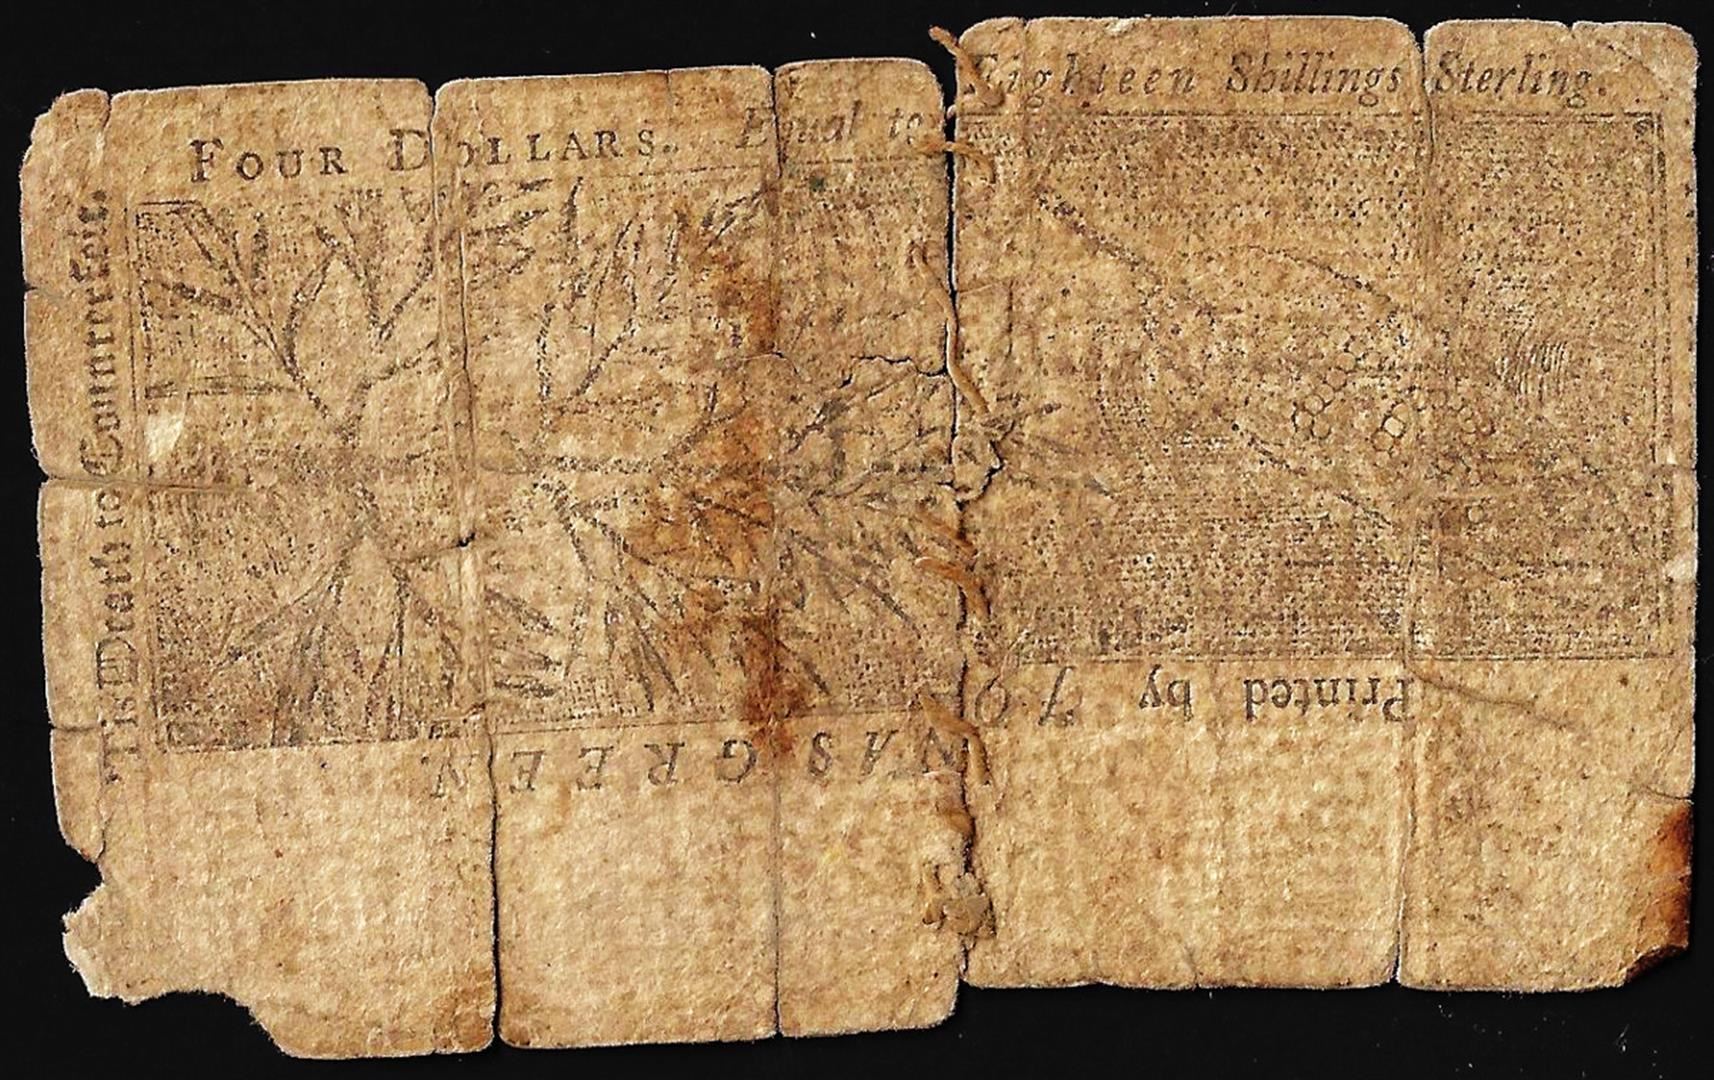 FOUR DOLLARS. Equal to Eighteen Shillings Sterling.
'Tis Death to Counterfeit.
Printed by JONAS GREEN.